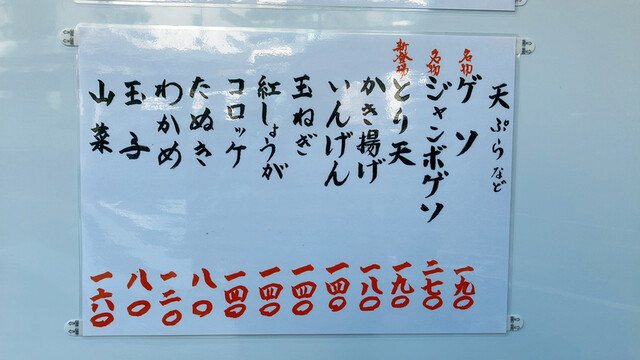 天ぷらなど
名物 ゲソ 一九〇
名物 ジャンボゲソ 二七〇
新登場 とり天 一九〇
かき揚げ 一八〇
いんげん 一四〇
玉ねぎ 一四〇
紅しょうが 一四〇
コロッケ 一四〇
たぬき 八〇
わかめ 一二〇
玉子 八〇
山菜 一六〇